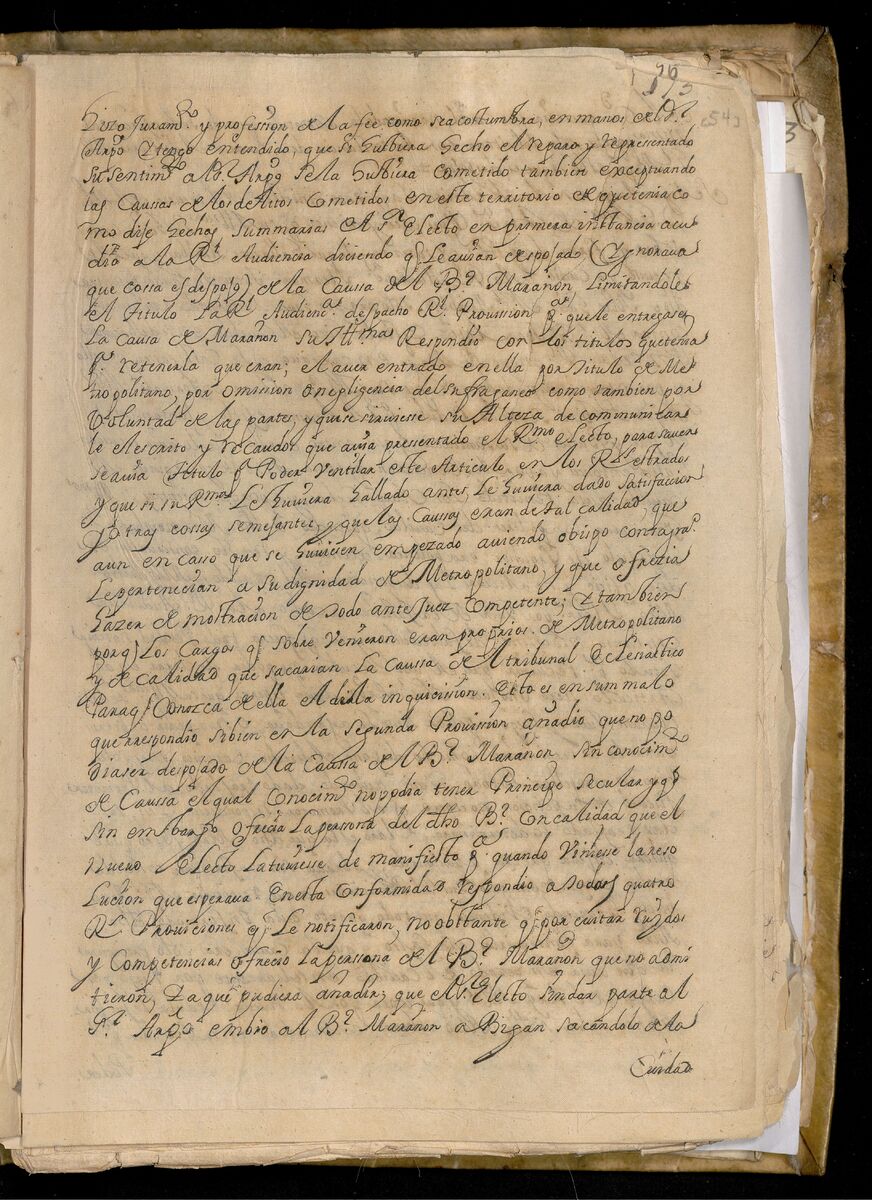 193
[54]
3
hizo Juram.to y profession de la fee como se acostumbra, en manos del S.r
Arpo y tengo entendido, que si hubiera hecho el reparo y representado
su sentim.to al S.r Arpo se la hubiera cometido tambien exceptuando
las Caussas de los delitos cometidos en este territorio de que tenia co
mo dije hechas Summarias el S.r Electo en primera instancia acu
dio a la R.l Audiencia diciendo q le avian despojado (y ygnorava
que cossa es despojo) de la Caussa del B.r Marañon Limitandole
el Titulo La R.l Audien.a despacho R.l Provission p.a que le entregasen
La causa de Marañon su Ill.ma Respondio con los titulos que tenia
p.a retenerla que eran; el aver entrado en ella por titulo de Me
tropolitano, por omission o negligencia del sufraganeo como tambien por
Voluntad de las partes, y que se sirviesse su Alteza de communicar
le el escrito y recaudos que avia presentado el R.mo electo, para saver
se avia titulo p.a Poder Ventilar este Articulo en los R.les estrados
y que si su R.ma Le huviera hallado antes, Le huviera dado satisfaccion
y otras cossas semejantes, y que las Caussas eran de tal calidad, que
aun en casso que se huviesen empezado aviendo obispo consagra.o
Le pertenecian a su dignidad de Metropolitano, y que ofrezia
hazer demostracion de todo ante Juez Competente; y tambien
porq Los Cargos q sobre Vinieron eran proprios de Metropolitano
y de calidad que sacarian La caussa del tribunal Eclesiastico
Paraq Conozca de ella el de la inquicission. Esto es en summa lo
que rrespondio si bien en la segunda Provission añadio que no po
dia ser despojado de la Caussa del B.r Marañon sin conocim.to
de Caussa el qual Conocim.to no podia tener Principe secular y q
sin embargo ofrecia La persona del dho B.r Con calidad que el
nuevo electo La tuviesse de manifiesto p.a quando Viniesse la reso
Lucion que esperava En esta Conformidad respondio a todas quatro
R.s Proviciones q Le notificaron, no obstante q por evitar ruydos
y Competencias ofrecio La persona del B.r Marañon que no admi
tieron, a que pudiera añadir; que el S.r Electo sin dar parte al
S.r Arpo embio al B.r Marañon a Bigan sacandolo de la
Ciudad